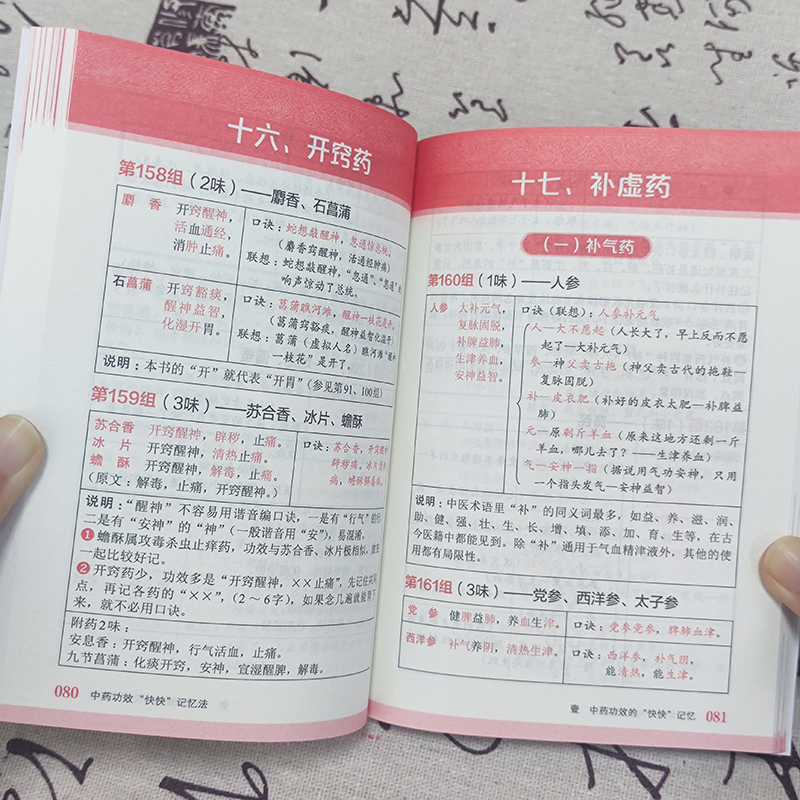 十六、开窍药
第158组（2味）——麝香、石菖蒲
麝 香 开窍醒神，
活血通经，
消肿止痛。
口诀：蛇想敲醒神，忽通惊总统。
（麝香窍醒神，活通经肿痛）
联想：蛇想敲醒神，“忽通”、“忽通”的
响声惊动了总统。
石菖蒲 开窍豁痰，
醒神益智，
化湿开胃。
口诀：菖蒲瞧河滩，醒神一枝花是开。
（菖蒲窍豁痰，醒神益智化湿开）
联想：菖蒲（虚拟人名）瞧河滩“醒神
一枝花”是开了。
说明：本书的“开”就代表“开胃”（参见第91、100组）
第159组（3味）——苏合香、冰片、蟾酥
苏合香 开窍醒神，辟秽，止痛。
冰 片 开窍醒神，清热止痛。
蟾 酥 开窍醒神，解毒，止痛。
（原文：解毒，止痛，开窍醒神。）
口诀：苏合香，开窍醒神
辟秽痛，冰片清热
痛，蟾酥解毒痛。
说明：“醒神”不容易用谐音编口诀，一是有“行气”的
二是有“安神”的“神”（一般谐音用“安”），易混淆，
❶ 蟾酥属攻毒杀虫止痒药，功效与苏合香、冰片极相似，放在
一起比较好记。
❷ 开窍药少，功效多是“开窍醒神，××止痛”，先记住共同
点，再记各药的“××”，（2～6字），如果念几遍就能背下
来，就不必用口诀。
附药2味：
安息香：开窍醒神，行气活血，止痛。
九节菖蒲：化痰开窍，安神，宣湿醒脾，解毒。
080 中药功效“快快”记忆法
十七、补虚药
（一）补气药
第160组（1味）——人参
人参 大补元气，
复脉固脱，
补脾益肺，
生津养血，
安神益智。
口诀（联想）：人参补元气
人—大不愿起（人长大了，早上反而不愿
起了—大补元气）
参—神父卖古拖（神父卖古代的拖鞋—
复脉固脱）
补—皮衣肥（补好的皮衣太肥—补脾益
肺）
元—原剩斤羊血（原来这地方还剩一斤
羊血，哪儿去了？——生津养血）
气—安神一指（据说用气功安神，只用
一个指头发气—安神益智）
说明：中医术语里“补”的同义词最多，如益、养、滋、润、
助、健、强、壮、生、长、增、填、添、加、育、生等，在古
今医籍中都能见到。除“补”通用于气血精津液外，其他的使
用都有局限性。
第161组（3味）——党参、西洋参、太子参
党 参 健脾益肺，养血生津。
口诀：党参党参，脾肺血津。
西洋参 补气养阴，清热生津。
口诀：西洋参，补气阴，
能清热，能生津。
壹 中药功效的“快快”记忆 081